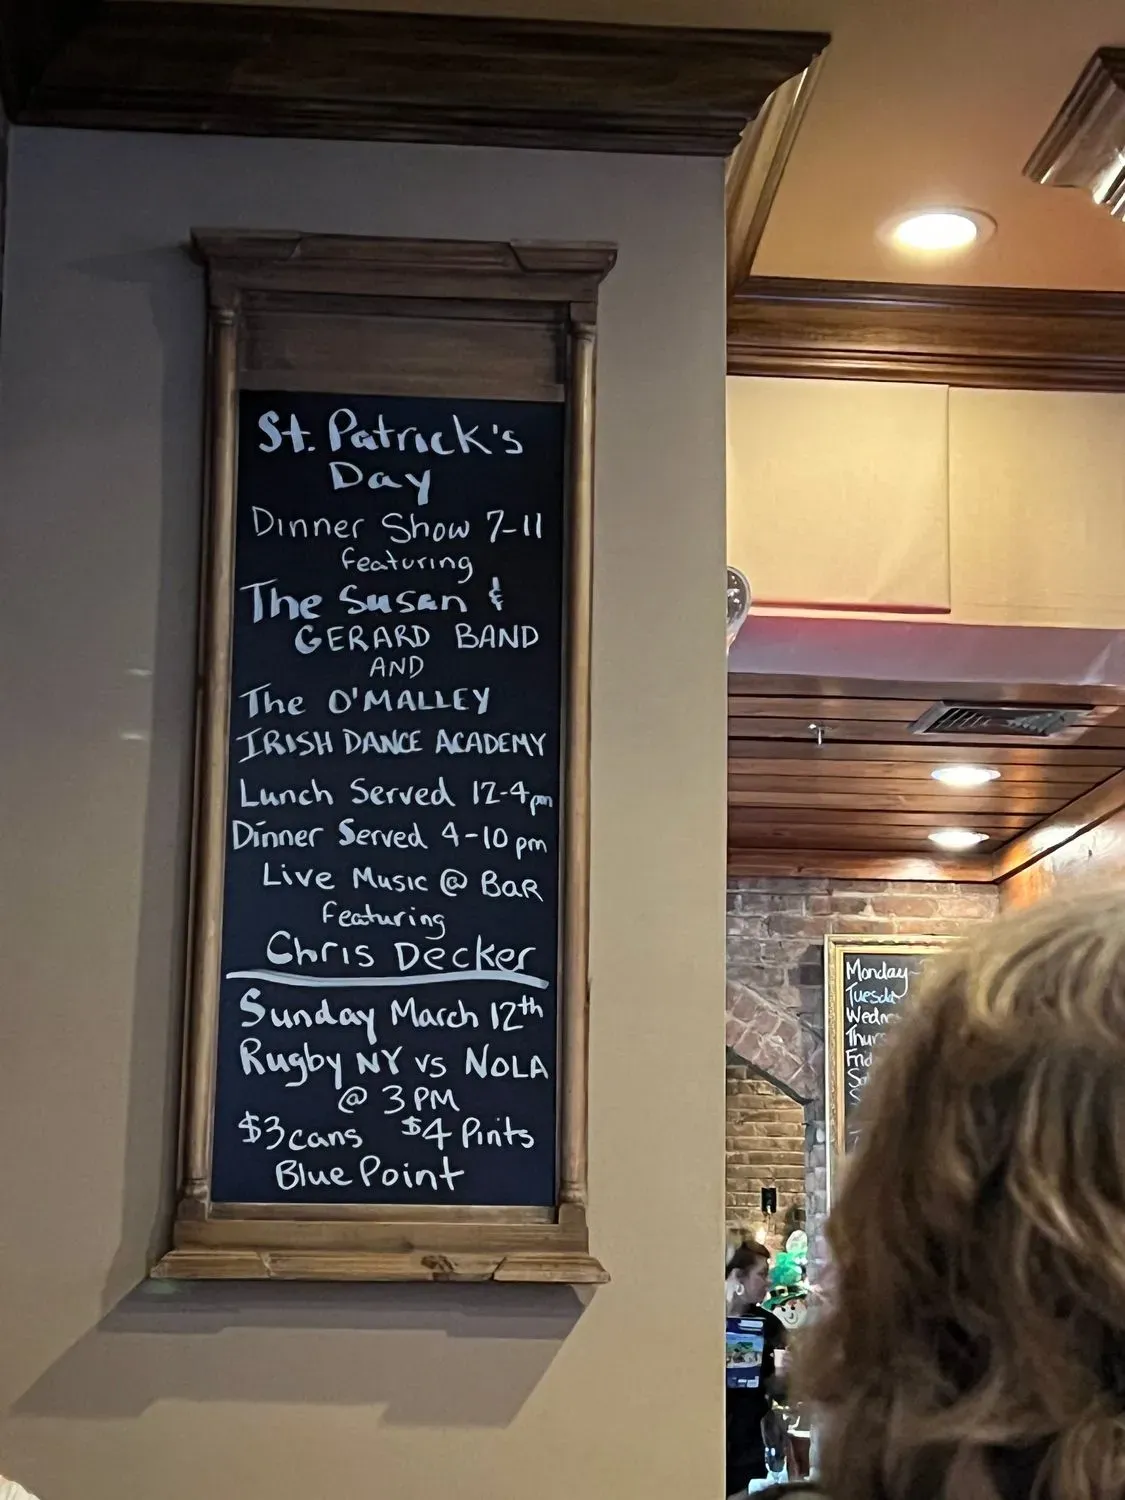 St. Patrick's
Day
Dinner Show 7-11
featuring
The Susan &
GERARD BAND
AND
The O'MALLEY
IRISH DANCE ACADEMY
Lunch Served 12-4pm
Dinner Served 4-10 pm
Live Music @ BaR
featuring
Chris Decker
Sunday March 12th
Rugby NY vs NOLA
@ 3 PM
$3 cans $4 Pints
Blue Point
Monday